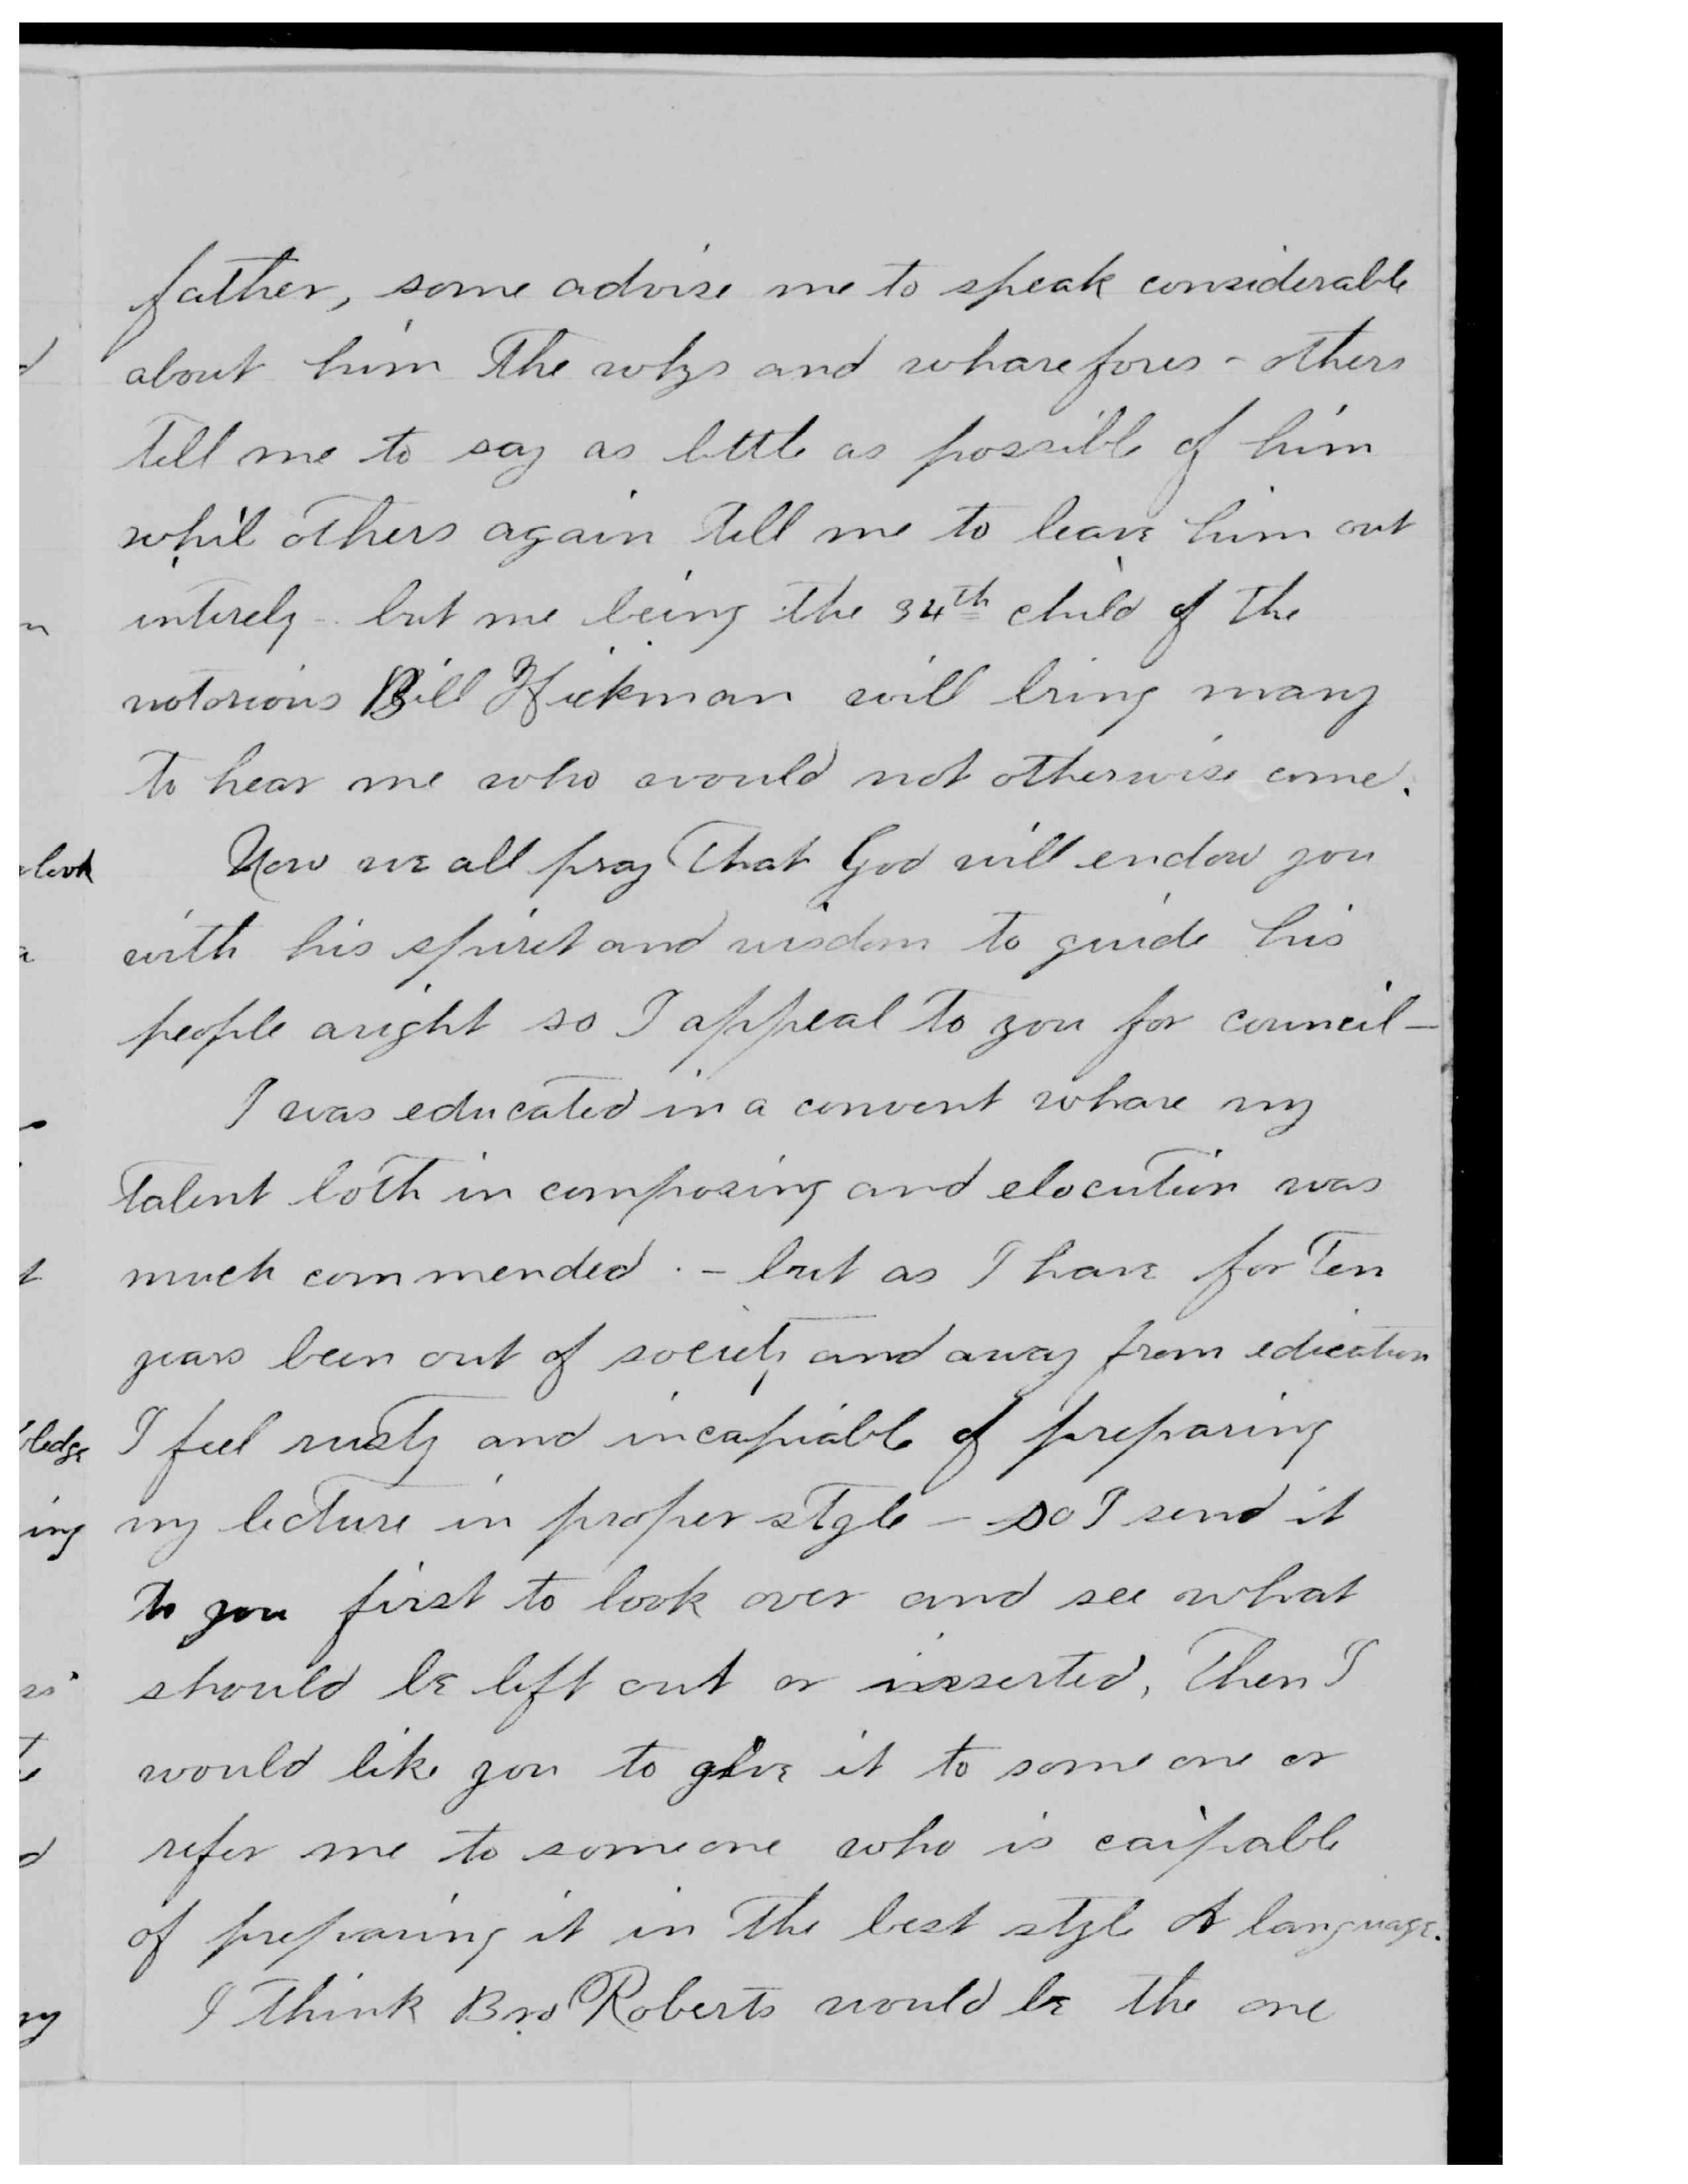 father, some advise me to speak considerable
about him The whys and wharefores - others
tell me to say as little as possible of him
whil others again tell me to leave him out
intirely - but me being the 34th child of the
notorious Bill Hickman will bring many
to hear me who would not otherwise come.
look
Now we all pray that God will endow you
with his spiret and wisdom to guide his
people aright so I appeal to you for council -
I was educated in a convent whare my
talent both in composing and elocution was
much commended. - but as I have for Ten
years been out of society and away from edication
I feel rusty and incapiable of preparing
ing my lecture in proper style - so I send it
to you first to look over and see what
should be left out or inserted, Then I
would like you to give it to some one or
refer me to someone who is caipable
of preparing it in the best style of language.
I think Bro Roberts would be the one